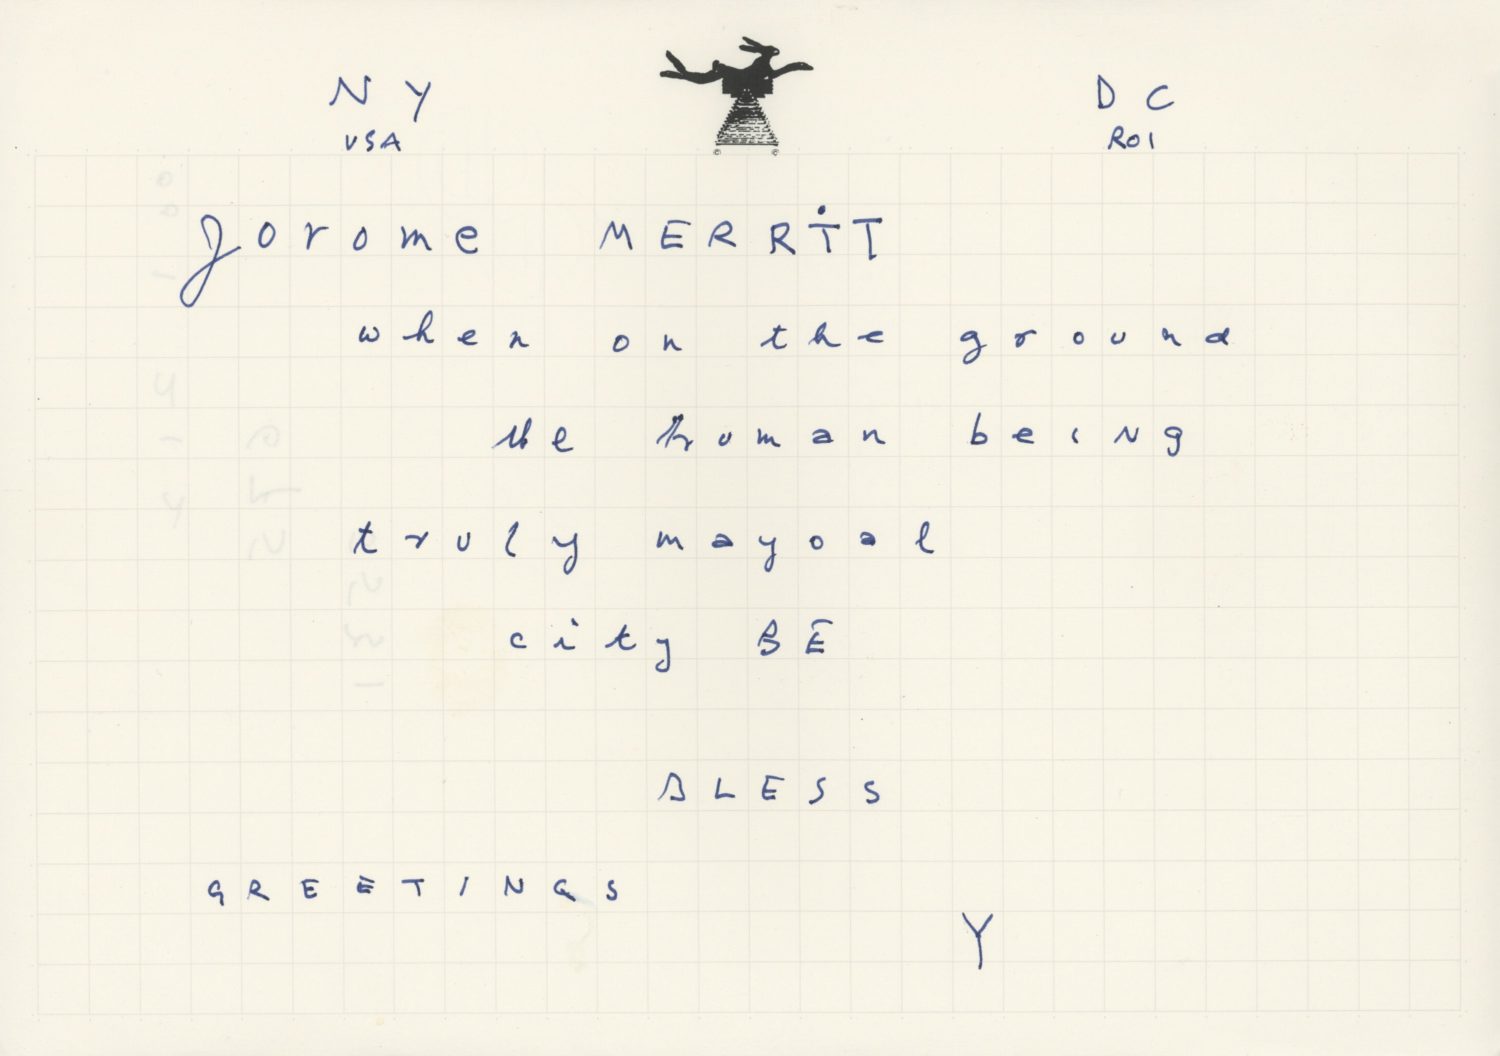 NY DC
USA ROI
Jorome MERRiTT
when on the ground
the human beiNg
truly mayoal
city BE
BLESS
GREETINGS
Y